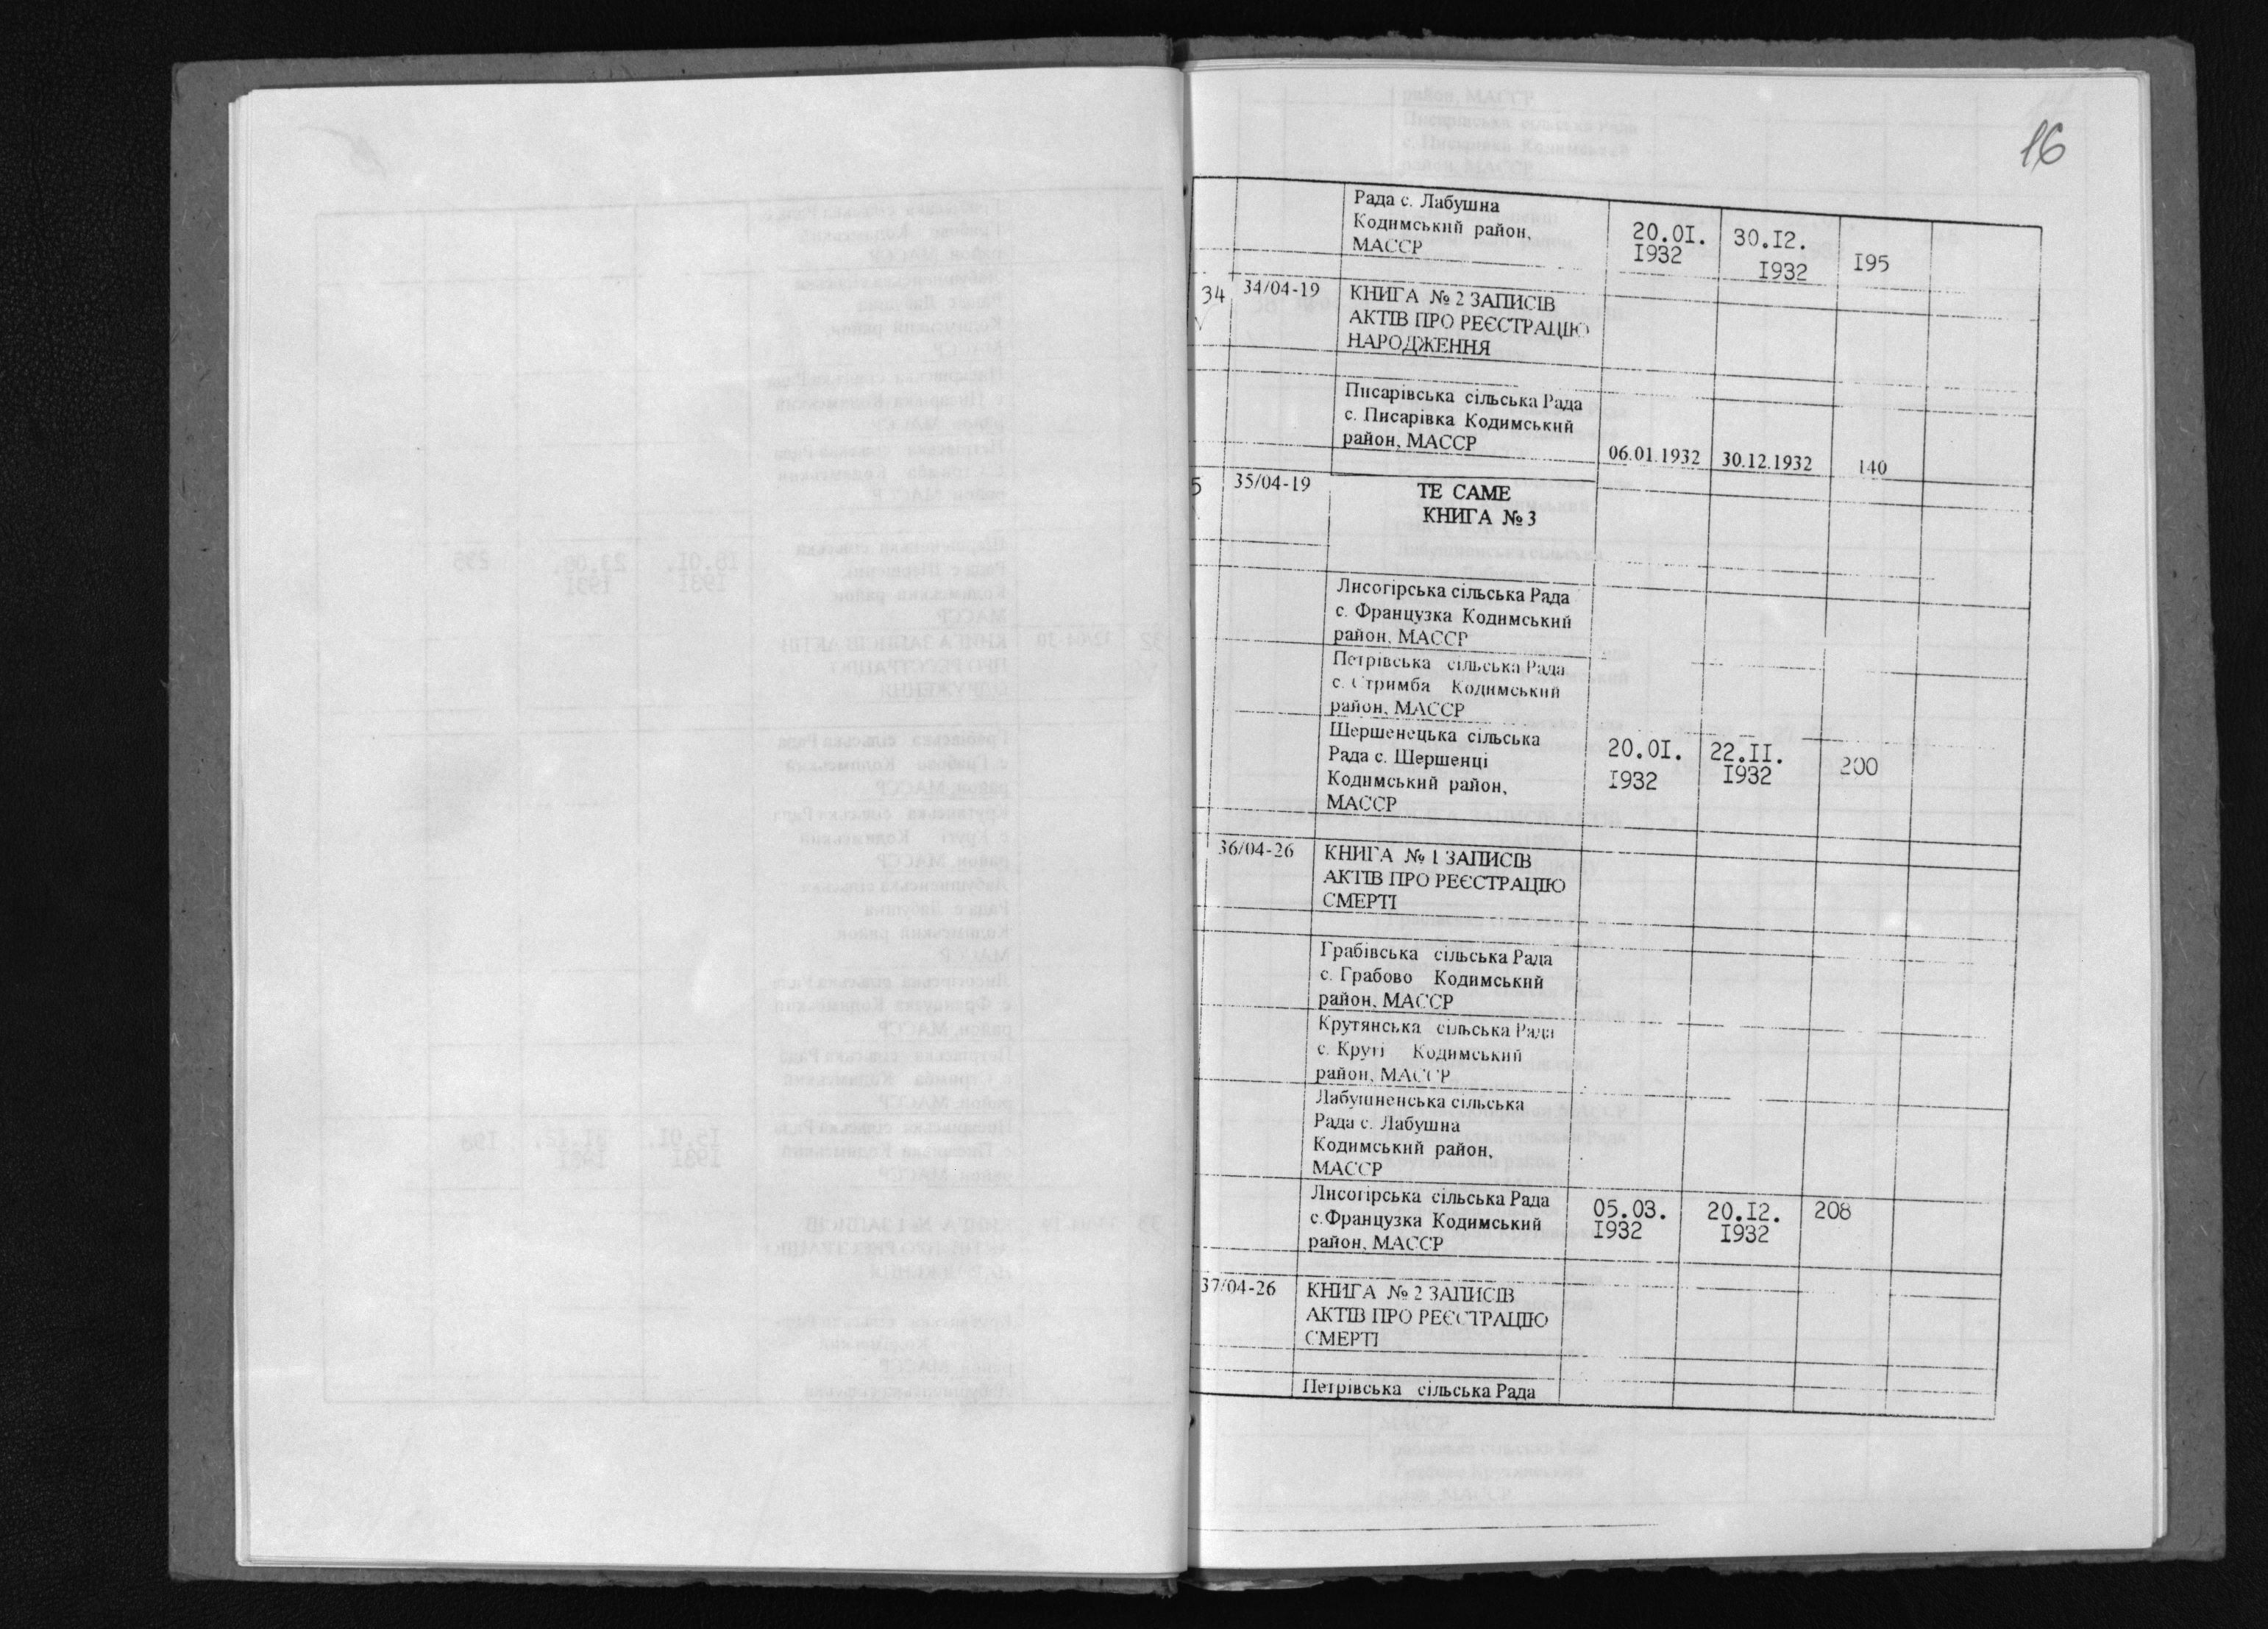 16
Рада с. Лабушна
Кодимський район,
МАССР
20.0I.
I932
30.I2.
I932
I95
34
34/04-19
КНИГА № 2 ЗАПИСІВ
АКТІВ ПРО РЕЄСТРАЦІЮ
НАРОДЖЕННЯ
Писарівська сільська Рада
с. Писарівка Кодимський
район, МАССР
06.01.1932
30.12.1932
140
5
35/04-19
ТЕ САМЕ
КНИГА № 3
Лисогірська сільська Рада
с. Французка Кодимський
район, МАССР
Петрівська сільська Рада
с. Стримба Кодимський
район, МАССР
Шершенецька сільська
Рада с. Шершенці
Кодимський район,
МАССР
20.0I.
I932
22.II.
I932
200
36/04-26
КНИГА № 1 ЗАПИСІВ
АКТІВ ПРО РЕЄСТРАЦІЮ
СМЕРТІ
Грабівська сільська Рада
с. Грабово Кодимський
район, МАССР
Крутянська сільська Рада
с. Круті Кодимський
район, МАССР
Лабушненська сільська
Рада с. Лабушна
Кодимський район,
МАССР
Лисогірська сільська Рада
с.Французка Кодимський
район, МАССР
05.03.
I932
20.I2.
I932
208
37/04-26
КНИГА № 2 ЗАПИСІВ
АКТІВ ПРО РЕЄСТРАЦІЮ
СМЕРТІ
Петрівська сільська Рада